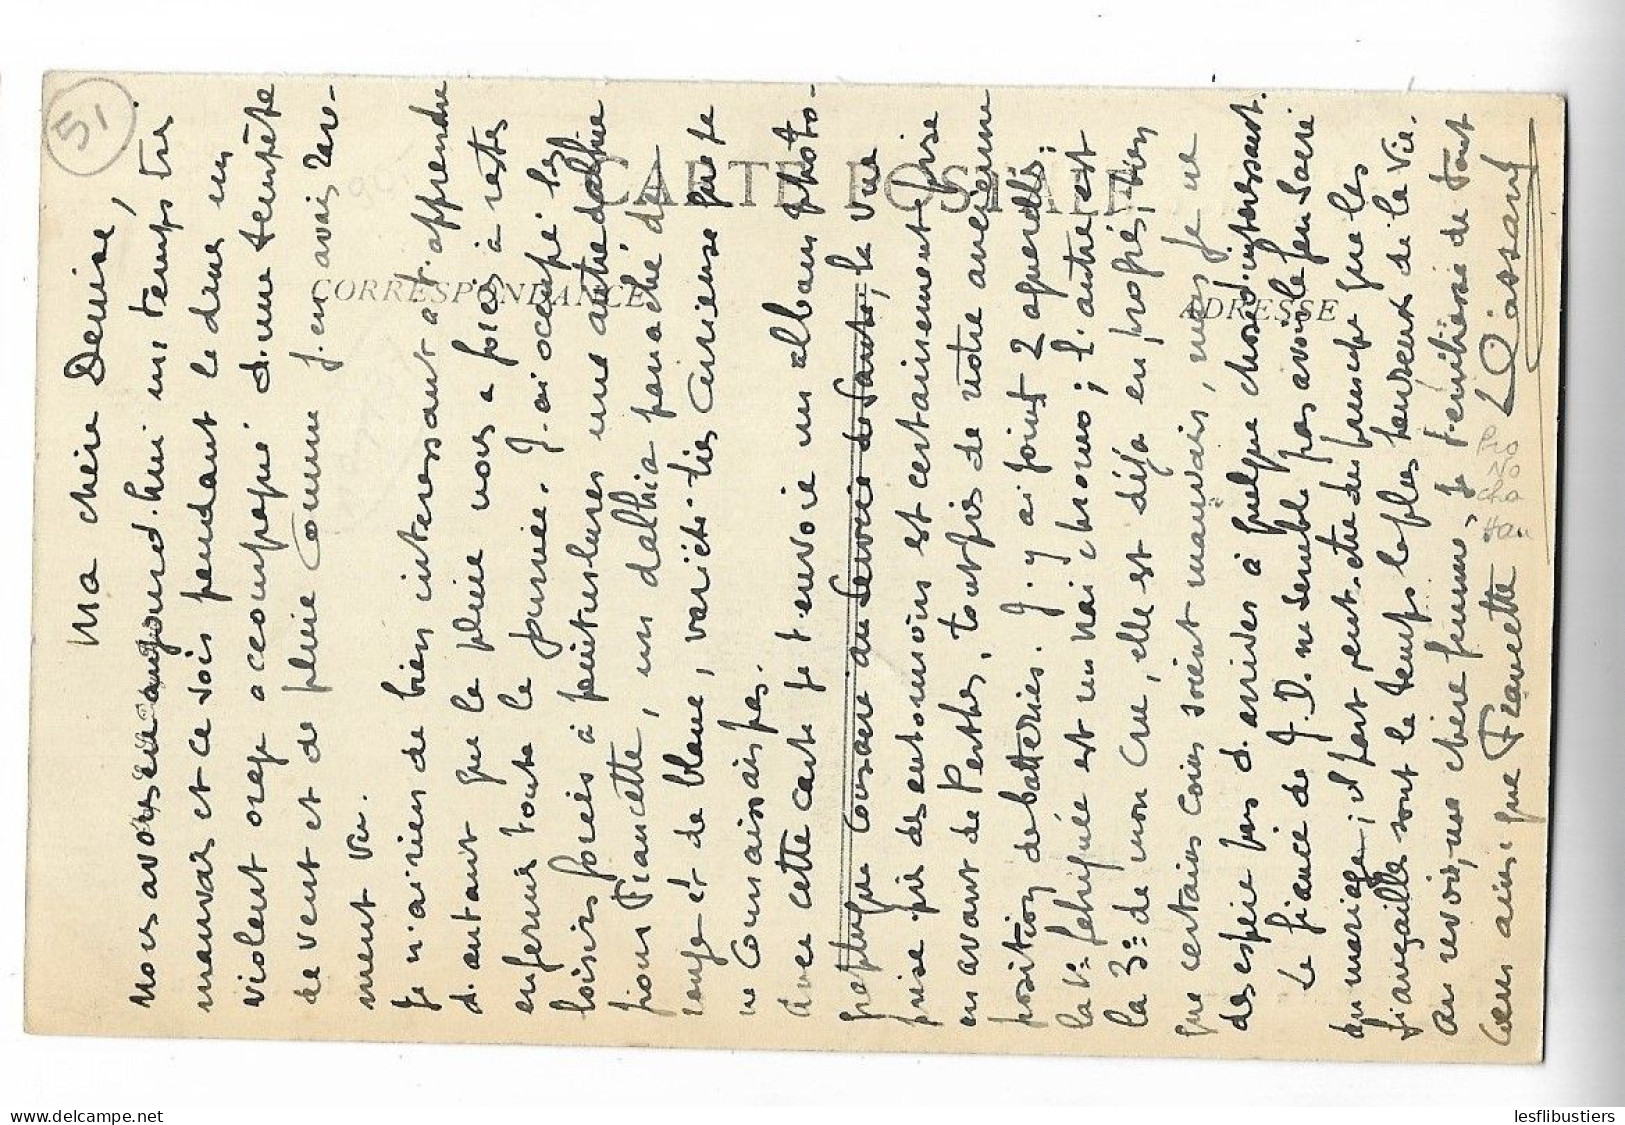 51
CARTE POSTALE
CORRESPONDANCE
ADRESSE
Ma chère Denise,
Nous avons eu aujourd'hui un temps très
mauvais et ce soir pendant le diner un
violent orage accompagné d'une tempête
de vent et de pluie comme j'en avais rare-
ment vu.
Je n'ai rien de bien interessant a t'apprendre
d'autant que la pluie nous a forcés à rester
enfermés toute la journée. J'ai occupé les
loisirs forcés à peinturlurer une autre dalhia
pour Francette, un dalhia panaché de
rouge et de blanc, variété très curieuse que je
ne connaissais pas.
Avec cette carte je t'envoie un album photo-
graphique consacré au Service de Santé, la vue
prise près des entonnoirs est certainement prise
en avant de Perthes, tout près de notre ancienne
position de batteries. J'y ai joint 2 aquerelles;
la 1e fabriquée est un vrai chromo; l'autre est
la 3e de mon cru, elle est déjà en progrès; bien
que certains coins soient mauvais, mais je ne
desespère pas d'arriver à quelque chose d'interessant.
Le fiancé de J. D. ne semble pas avoir le feu sacré
du mariage; il part peut-être du principe que les
fiançailles sont le temps le plus heureux de la vie.
Au revoir, ma chère femme, je t'embrasse de tout
coeur ainsi que Francette
Pro
No
cha
Hau
lesflibustiers